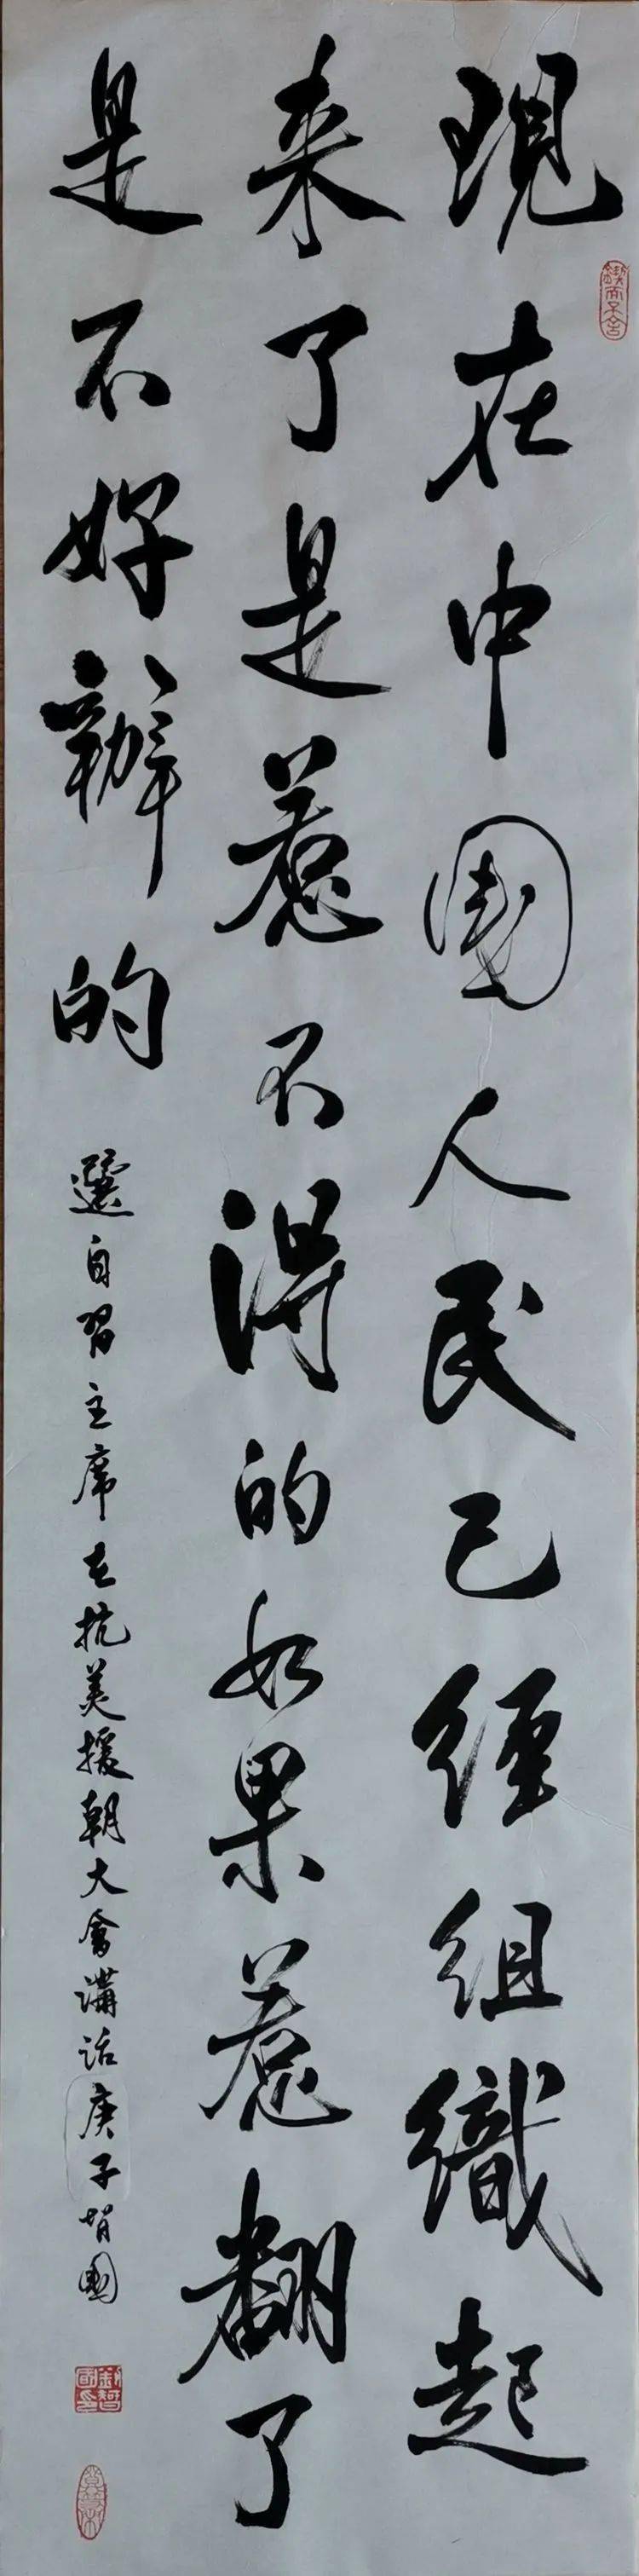 現在中國人民已經組織起
来了是惹不得的如果惹翻了
是不好辦的
選自習主席在抗美援朝大會講話庚子智國
鍥而不舍